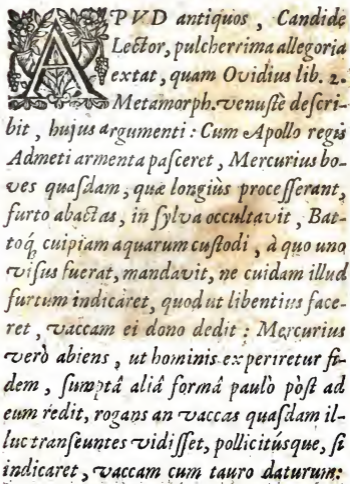 APVD antiquos, Candide
Lector, pulcherrima allegoria
extat, quam Ovidius lib. 2.
Metamorph. venustè descri-
bit, hujus argumenti: Cum Apollo regis
Admeti armenta pasceret, Mercurius bo-
ves quasdam, quæ longiùs processerant,
furto abactas, in sylva occultavit, Bat-
toq́; cuipiam aquarum custodi, à quo uno
visus fuerat, mandavit, ne cuidam illud
furtum indicaret, quod ut libentius face-
ret, vaccam ei dono dedit; Mercurius
verò abiens, ut hominis experiretur fi-
dem, sumptâ aliâ formâ paulò pòst ad
eum redit, rogans an vaccas quasdam il-
luc transeuntes vidisset, pollicitúsque, si
indicaret, vaccam cum tauro daturum: